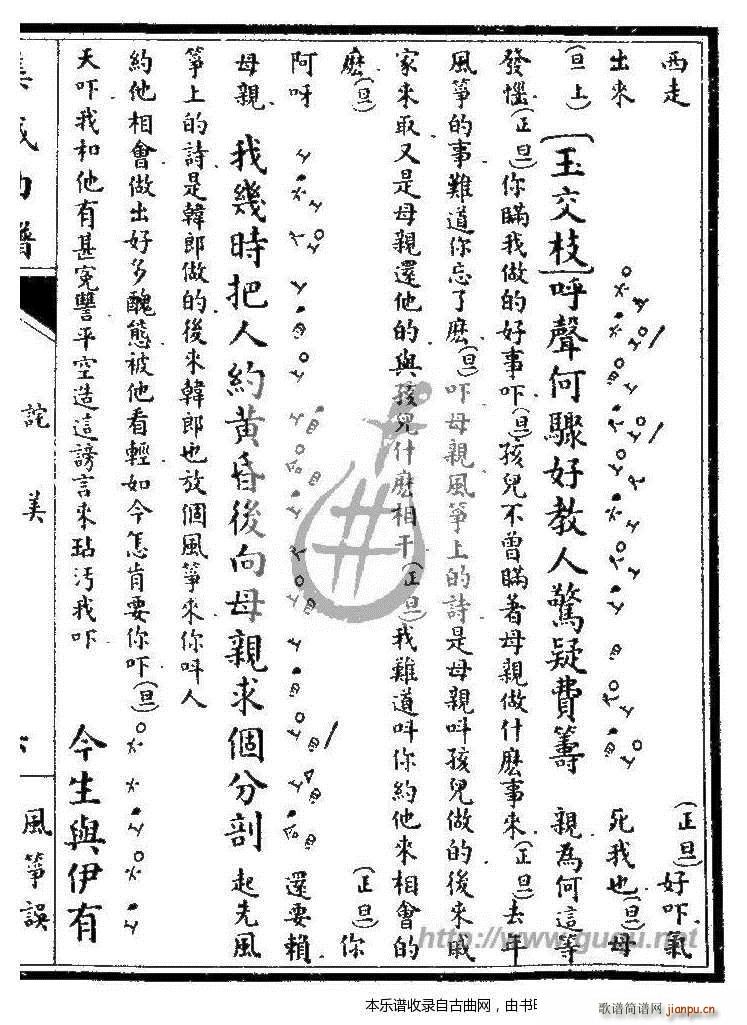 西走 (正旦)好吓氣
出來 死我也(旦)母
(旦上)【玉交枝】呼聲何驟好教人驚疑費籌 親為何這等
發惱(正旦)你瞞我做的好事吓(旦)孩兒不曾瞞著母親做什麽事來(正旦)去年
風箏的事難道你忘了麽(旦)吓母親風箏上的詩是母親叫孩兒做的後來戚
家來取又是母親還他的與孩兒什麽相干(正旦)我難道叫你約他來相會的
麽(旦) (正旦)你
阿呀 還要賴
母親 我幾時把人約黃昏後向母親求個分剖 起先風
箏上的詩是韓郎做的後來韓郎也放個風箏來你叫人
約他相會做出好多醜態被他看輕如今怎肯要你吓(旦)
天吓我和他有甚冤讐平空造這謗言來玷汚我吓 今生與伊有
集成曲譜
詫美
風箏誤
http://www.guqu.net
本乐谱收录自古曲网，由书
歌谱简谱网
jianpu.cn